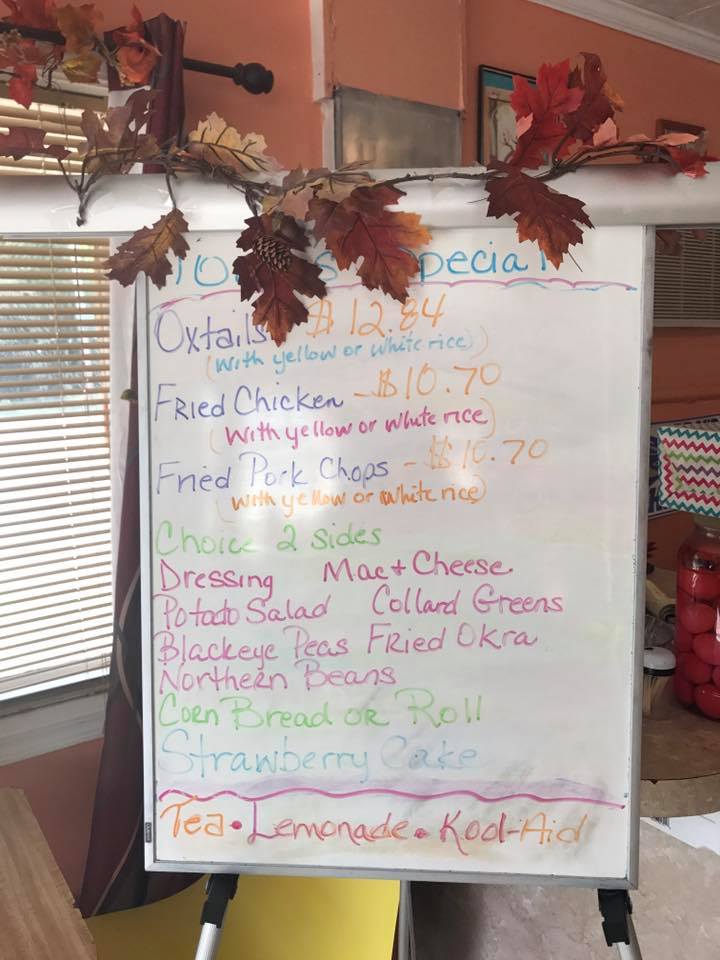 Special
Oxtails $12.84
(with yellow or white rice)
Fried Chicken - $10.70
(with yellow or white rice)
Fried Pork Chops - $10.70
(with yellow or white rice)
Choice 2 sides
Dressing Mac + Cheese
Potato Salad Collard Greens
Blackeye Peas Fried Okra
Northern Beans
Corn Bread or Roll
Strawberry Cake
Tea • Lemonade • Kool-Aid